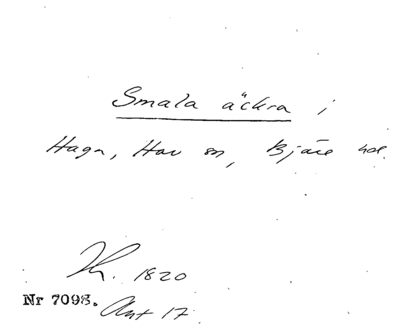 Smala äckra i
Haga, Hov sn, Bjäre hd.
K. 1820
Nr 7098. Ant 17